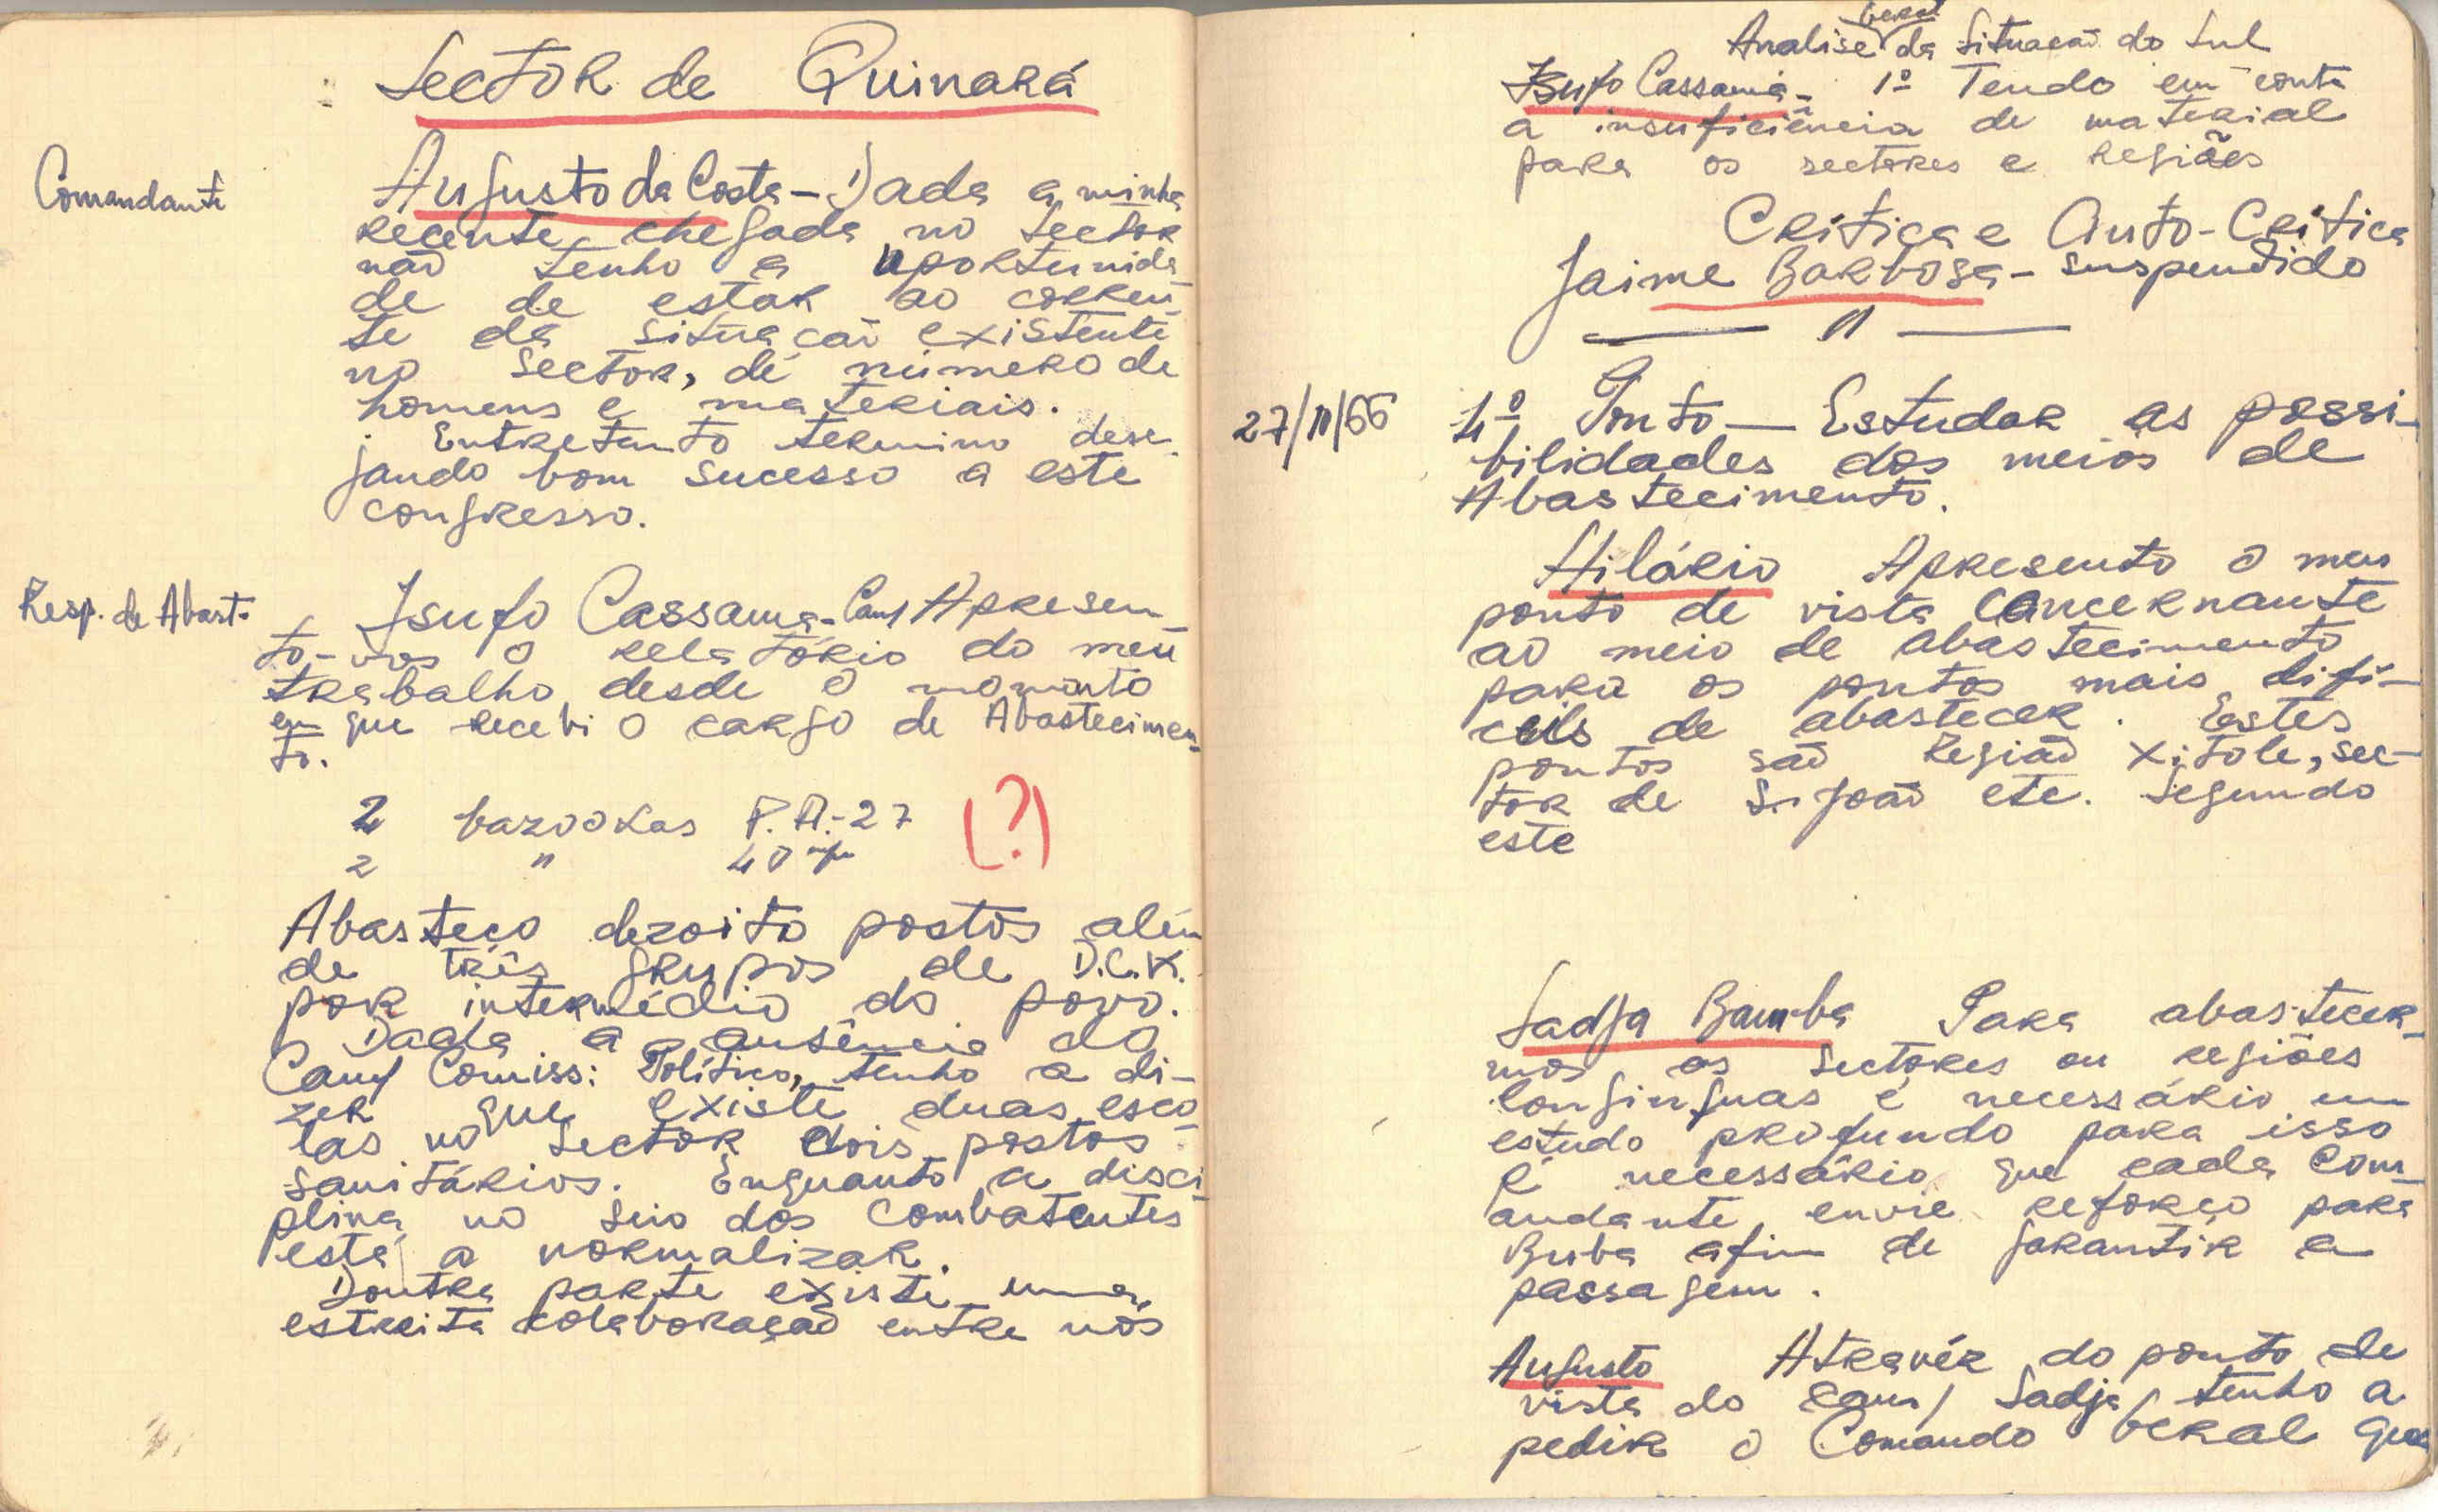 Sector de Quinará
Comandante
Augusto da Costa - Dada a minha
recente chegada no sector
não tenho a oportunida
de de estar ao corren-
te da situação existente
no sector, de número de
homens e materiais.
Entretanto termino dese-
jando bom sucesso a este
congresso.
Resp. de Abast.
Isufo Cassama - Cam/ Apresen-
to-vos o relatório do meu
trabalho desde o momento
em que recebi o cargo de Abastecimen-
to.
2 bazookas P.A.-27 (?)
2 " 40 m/m
Abasteço dezoito postos além
de três grupos de D.C.K.
por intermédio do povo.
Dada a ausência do
Cam/ Comiss: Político, tenho a di-
zer que existe duas esco-
las no sector dois postos
sanitários. Enquanto a disci-
plina no seio dos combatentes
está a normalizar.
Doutra parte existe uma
estreita colaboração entre nós
Analise geral da Situação do Sul
Isufo Cassamá - 1º Tendo em conta
a insuficiência de material
para os sectores e regiões
Crítica e Auto-Crítica
Jaime Barbosa - suspendido
— " —
27/11/66
1º Ponto — Estudar as possi-
bilidades dos meios de
Abastecimento.
Hilário Apresento o meu
ponto de vista concernante
ao meio de abastecimento
para os pontos mais difí-
ceis de abastecer. Estes
pontos são Região Xitole, sec-
tor de S. João etc. Segundo
este
Sadja Bamba Para abastecer-
mos os sectores ou regiões
longinguas é necessário um
estudo profundo para isso
é necessário que cada Com-
andante envie reforço para
Buba afim de garantir a
passagem.
Augusto Atravéz do ponto de
vista do Cam/ Sadja, tenho a
pedir o Comando Geral que